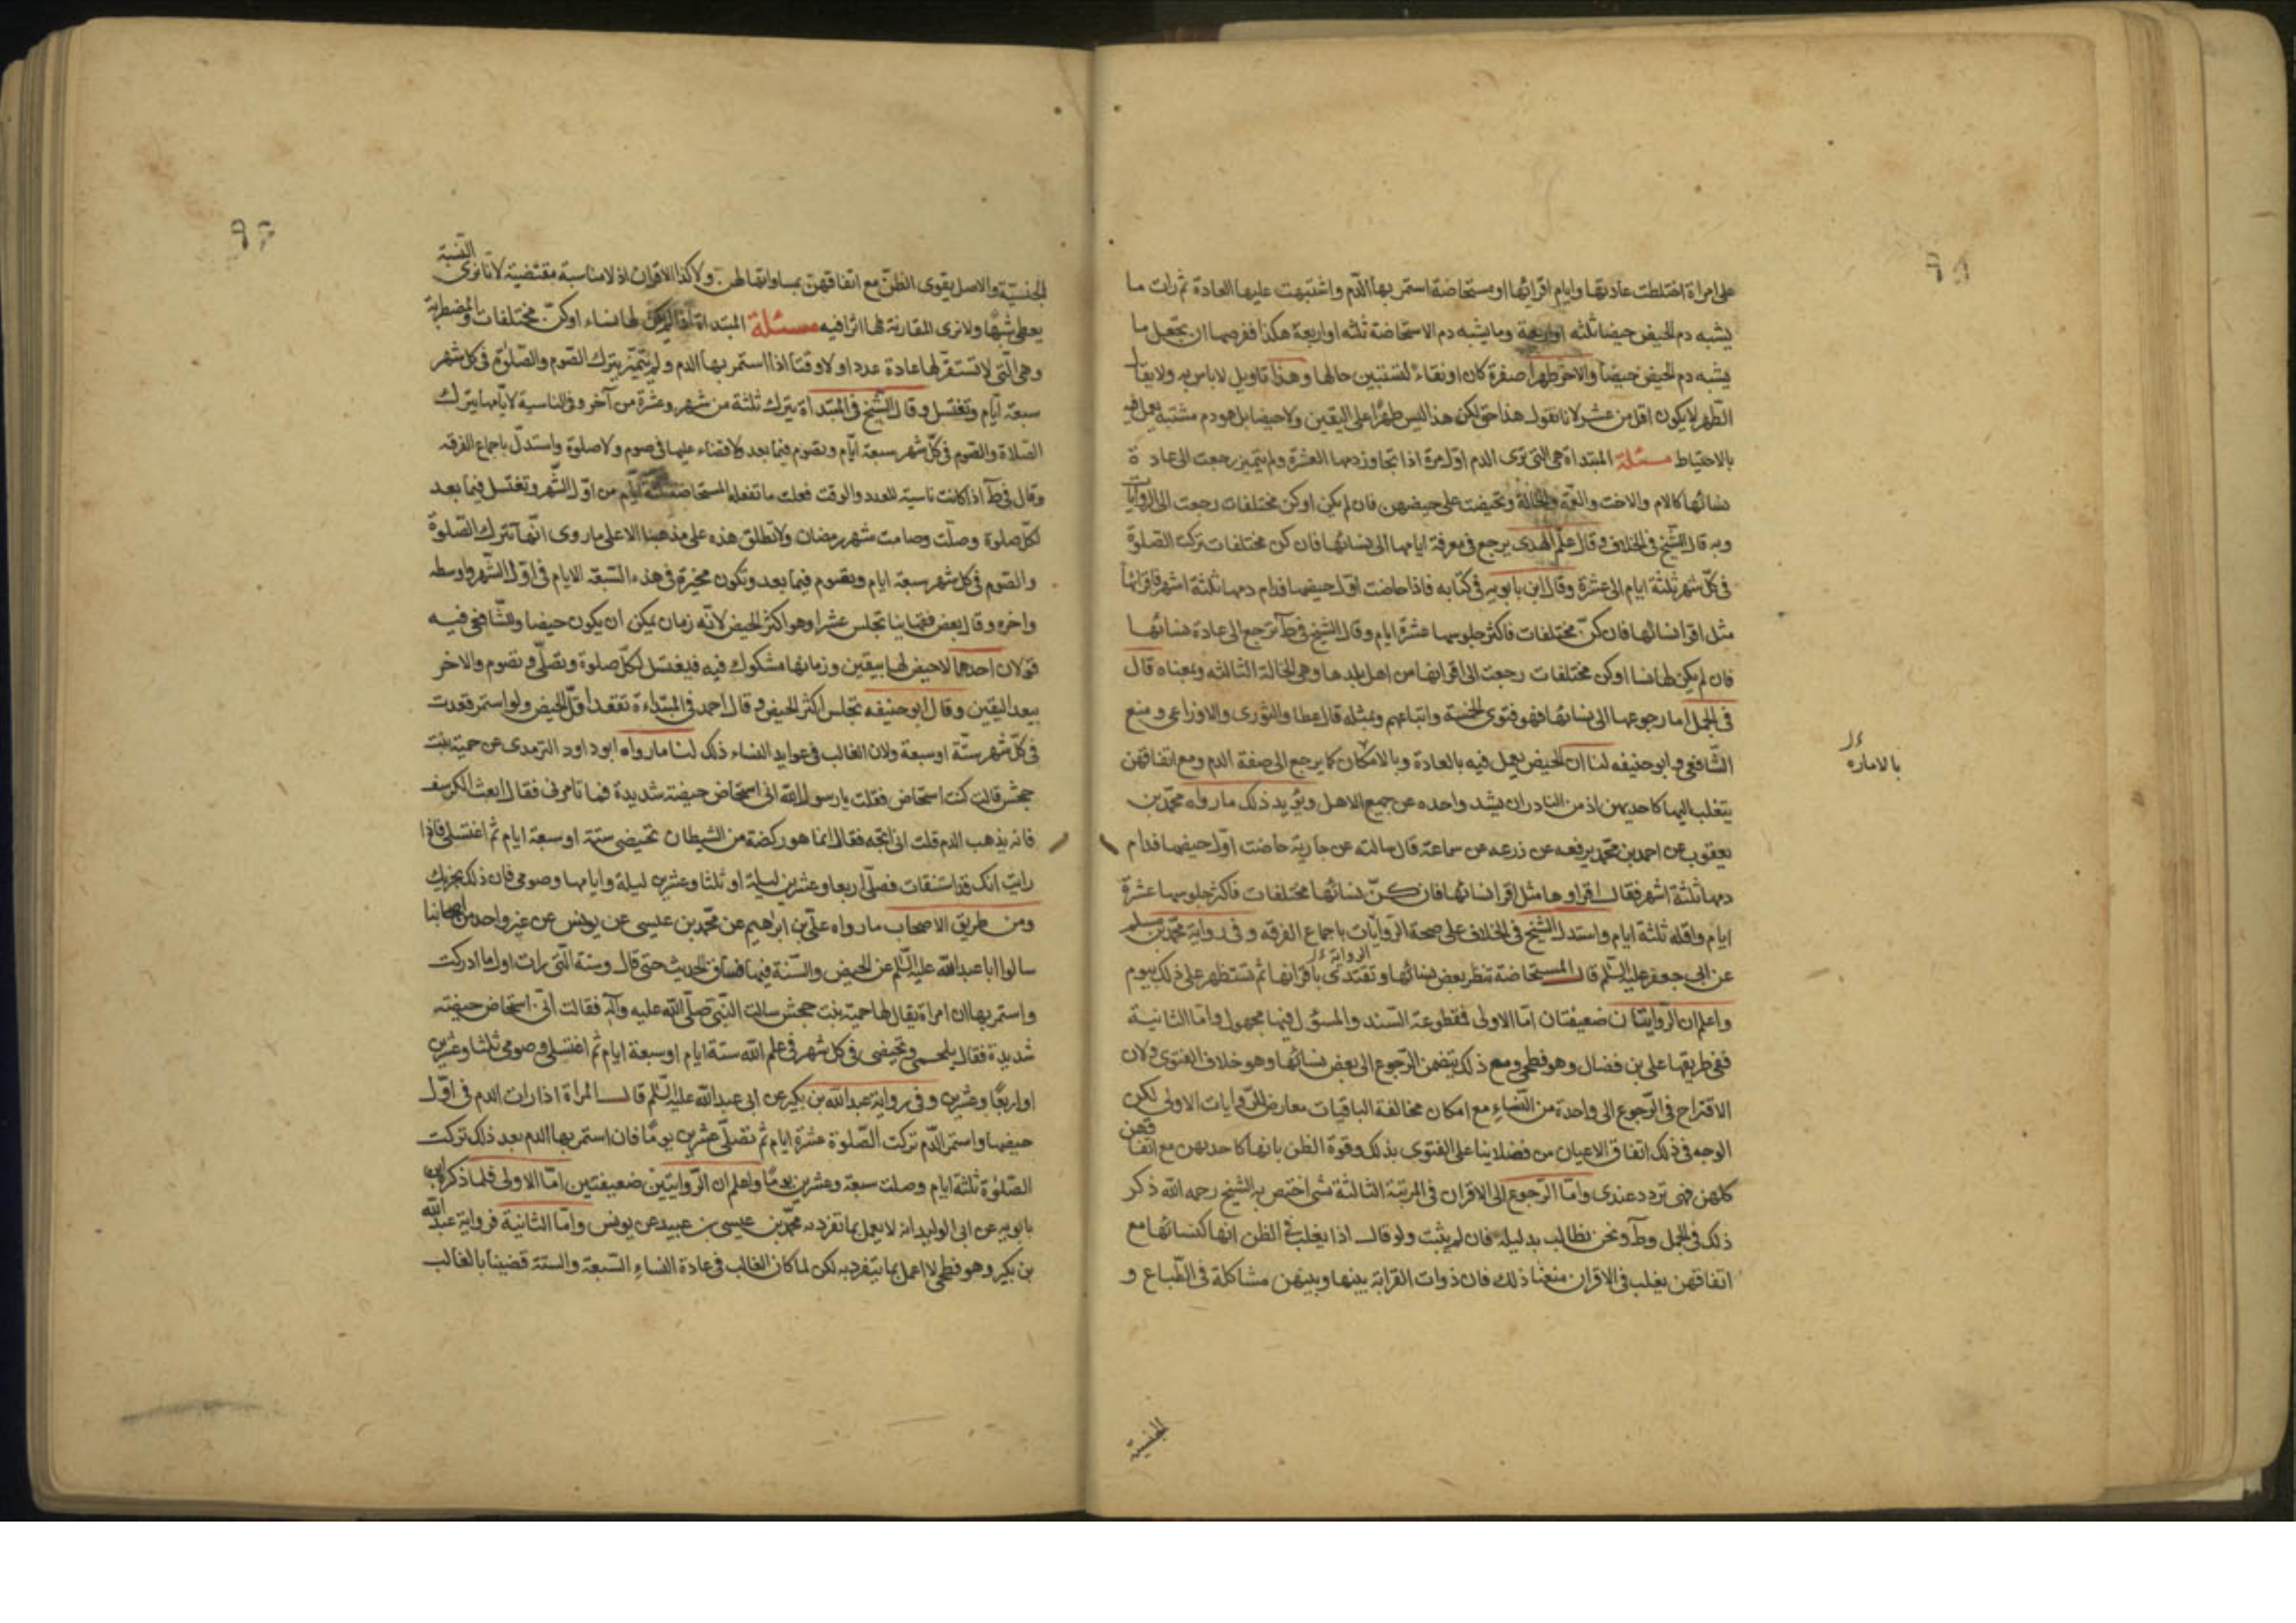 على امراة اختلطت عادتها وايام اقرائها او مستحاضة استمر بها الدّم واشتبهت عليها العادة ثم رات ما
يشبه دم الحيض حيضا ثلثه او اربعة وما يشبه دم الاستحاضة ثلثه او اربعة هكذا ففرضها ان تجعل ما
يشبه دم الحيض حيضا والاخر طهرا صفرة كان او نقاء لتستبين حالها وهذا تاويل لا باس به ولا يقال
الطّهر لا يكون اقل من عشر لانا نقول هذا حق لكن هذا ليس طهرا على اليقين ولا حيضا بل هو دم مشتبه يعمل فيه
بالاحتياط مسئلة المبتداة هى التى ترى الدم اوّل مرة اذا تجاوز دمها العشرة ولم يتميز رجعت الى عادة
نسائها كالام والاخت والعمّة والخالة وتحيضت على حيضهن فان لم يكن او كن مختلفات رجعت الى الروايات
وبه قال الشّيخ فى الخلاف وقال علم الهدى يرجع فى معرفة ايامها الى نسائها فان كن مختلفات تركت الصلوة
فى كلّ شهر ثلثة ايام الى عشرة وقال ابن بابويه فى كتابه فاذا حاضت اوّل حيضها فدام دمها ثلثة اشهر فاقرائها
مثل اقرا نسائها فان كنّ مختلفات فاكثر جلوسها عشرة ايام وقال الشيخ فى ط ترجع الى عادة نسائها
فان لم يكن لها نسا او كن مختلفات رجعت الى اقرانها من اهل بلدها وهى الحالة الثالثه وبمعناه قال
فى الجمل اما رجوعها الى نسائها فهو فتوى الخمسة واتباعهم وبمثله قال عطا والثورى والاوزاعى ومنع
الشّافعى وابو حنيفه لنا ان الحيض يعمل فيه بالعادة وبالامكان كما يرجع الى صفة الدم ومع اتفاقهن
بالاماره
يتغلب اليها كاحديهن اذ من النادر ان يشد واحده عن جميع الاهل ويؤيد ذلك ما رواه محمّد بن
يعقوب عن احمد بن محمّد يرفعه عن زرعه عن سماعة قال سالته عن جارية حاضت اوّل حيضها فدام
دمها ثلثة اشهر فقال اقراوها مثل اقرا نسائها فان كنّ نسائها مختلفات فاكثر جلوسها عشرة
ايام واقله ثلثة ايام واستدل الشيخ فى الخلاف على صحة الرّوايات باجماع الفرقه وفى رواية محمّد بن مسلم
عن ابى جعفر عليه السّلم قال المستحاضة تنظر بعض نسائها وتقتدى باقرائها ثم تستظهر على ذلك بيوم
واعلم ان الرّوايتان ضعيفتان امّا الاولى فمقطوعة السّند والمسؤل فيها مجهول وامّا الثانية
ففى طريقها على بن فضال وهو فطحى ومع ذلك يتضمن الرّجوع الى بعض نسائها وهو خلاف الفتوى ولان
الاقتراح فى الرّجوع الى واحدة من النّساء مع امكان مخالفة الباقيات معارض للرّوايات الاولى لكن
الوجه فى ذلك اتفاق الاعيان من فضلاينا على الفتوى بذلك وقوة الظن بانها كاحديهن مع اتفاقهن
كلهن فهى تردد عندى وامّا الرّجوع الى الاقران فى المرتبة الثالثة شى اختص به الشيخ رحمه الله ذكر
ذلك فى الجمل وط ونحن نطالب بدليله فان لم يثبت ولو قال اذا يغلب فى الظن انها كنسائها مع
اتفاقهن يغلب فى الاقران منعنا ذلك فان ذوات القرابة بينها وبينهن مشاكلة فى الطّباع و
الجنسية
الجنسيّة والاصل يقوى الظنّ مع اتفاقهنّ بمساواتها لهن ولا كذا الاقران اذ لا مناسبة مقتضية لانا نرى النسبة
يعطى شبها ولا نرى المقارنة لها اثرا فيه مسئلة المبتداة اذا لم يكن لها نساء او كنّ مختلفات والمضطربة
وهى الّتى لا تستقرّ لها عادة عددا ولا وقتا اذا استمر بها الدم ولم يتميّز بترك الصّوم والصّلوة فى كل شهر
سبعة ايّام وتغتسل وقال الشّيخ فى المبتداة يترك ثلثة من شهر وعشرة من آخر وفى الناسية لايّامها يترك
الصّلاة والصّوم فى كلّ شهر سبعة ايّام وتصوم فيما بعد ولا قضاء عليها فى صوم ولا صلوة واستدلّ باجماع الفرقه
وقال فى ط اذا كانت ناسية للعدد والوقت فعلت ما تفعله المستحاضة ثلثة ايّام من اوّل الشّهر وتغتسل فيما بعد
لكلّ صلوة وصلّت وصامت شهر رمضان ولا تطلق هذه على مذهبنا الا على ما روى انّها تترك الصّلوة
والصّوم فى كل شهر سبعة ايام ويصوم فيما بعد وتكون مخيرة فى هذه السّبعة الايام فى اوّل الشّهر واوسطه
واخره وقال بعض فقهاينا تجلس عشرا وهو اكثر الحيض لانّه زمان يمكن ان يكون حيضا وللشّافعى فيه
قولان احدهما لا حيض لها بيقين وزمانها مشكوك فيه فيغتسل لكلّ صلوة وتصلّى وتصوم والاخر
بيعد اليقين وقال ابو حنيفه تجلس اكثر الحيض وقال احمد فى المبتداءة تقعد اقلّ الحيض ولو استمر قعدت
فى كلّ شهر ستّة او سبعة ولان الغالب فى عوايد النساء ذلك لنا ما رواه ابو داود الترمدى عن حمنة بنت
جحش قالت كنت استحاض فقلت يا رسول الله انى استحاض حيضة شديدة فما تامرنى فقال ابعث الكرسف
فانه يذهب الدم قلت انى اثجه فقال انما هو ركضة من الشيطان تحيضى ستة او سبعة ايام ثم اغتسلى فاذا
رايت انك قد استنقات فصلّى اربعا وعشرين ليلة او ثلثا وعشرين ليلة وايامها وصومى فان ذلك يجزيك
ومن طريق الاصحاب ما رواه علىّ بن ابرهيم عن محمّد بن عيسى عن يونس عن غير واحد من اصحابنا
سالوا ابا عبد الله عليه السّلم عن الحيض والسّنة فيها فساق الحديث حتى قال وسنة الّتى رات اول ما ادركت
واستمر بها ان امراة يقال لها حمنة بنت جحش سالت النّبىّ صلّى الله عليه وآله فقالت انّى استحاض حيضة
شديدة فقال وتحيضى فى كل شهر فى علم الله ستة ايام او سبعة ايام ثم اغتسلى وصومى ثلثا وعشرين
او اربعًا وعشرين وفى رواية عبد الله بن بكير عن ابى عبد الله عليه السّلم قال المراة اذا رات الدم فى اوّل
حيضها واستمر الدّم تركت الصّلوة عشرة ايام ثم تصلّى عشرين يومًا فان استمر بها الدم بعد ذلك تركت
الصّلوة ثلثة ايام وصلت سبعة وعشرين يومًا واعلم ان الرّوايتين ضعيفتين امّا الاولى فلما ذكر ابن
بابويه عن ابن الوليد انه لا يعمل بما تفرد به محمّد بن عيسى بن عبيد عن يونس وامّا الثانية فرواية عبد الله
بن بكير وهو فطحى لا اعمل بما يتفرد به لكن لما كان الغالب فى عادة النساء السّبعة والستة قضينا بالغالب